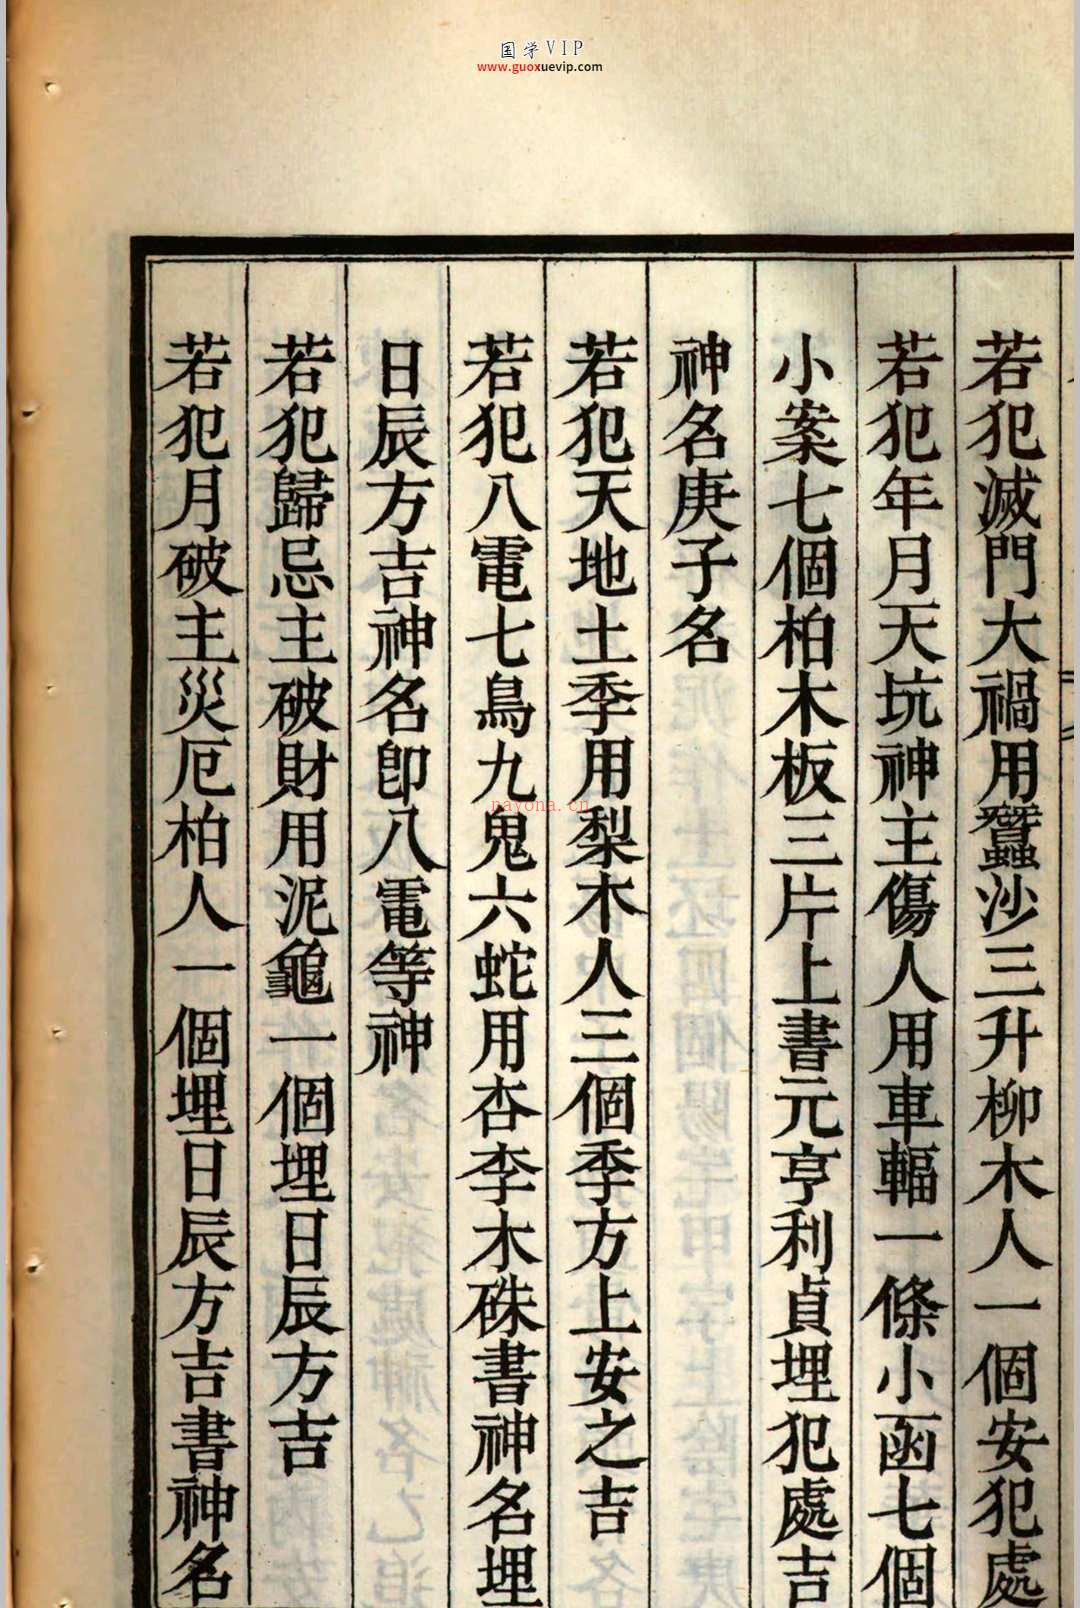 国学VIP
www.guoxuevip.com
若犯滅門大禍用蠶沙三升柳木人一個安犯處
若犯年月天坑神主傷人用車輻一條小函七個
小案七個柏木板三片上書元亨利貞埋犯處吉
神名庚子名
若犯天地土季用梨木人三個季方上安之吉
若犯八電七鳥九鬼六蛇用杏李木硃書神名埋
日辰方吉神名卽八電等神
若犯歸忌主破財用泥龜一個埋日辰方吉
若犯月破主災厄柏人一個埋日辰方吉書神名
nayona.cn